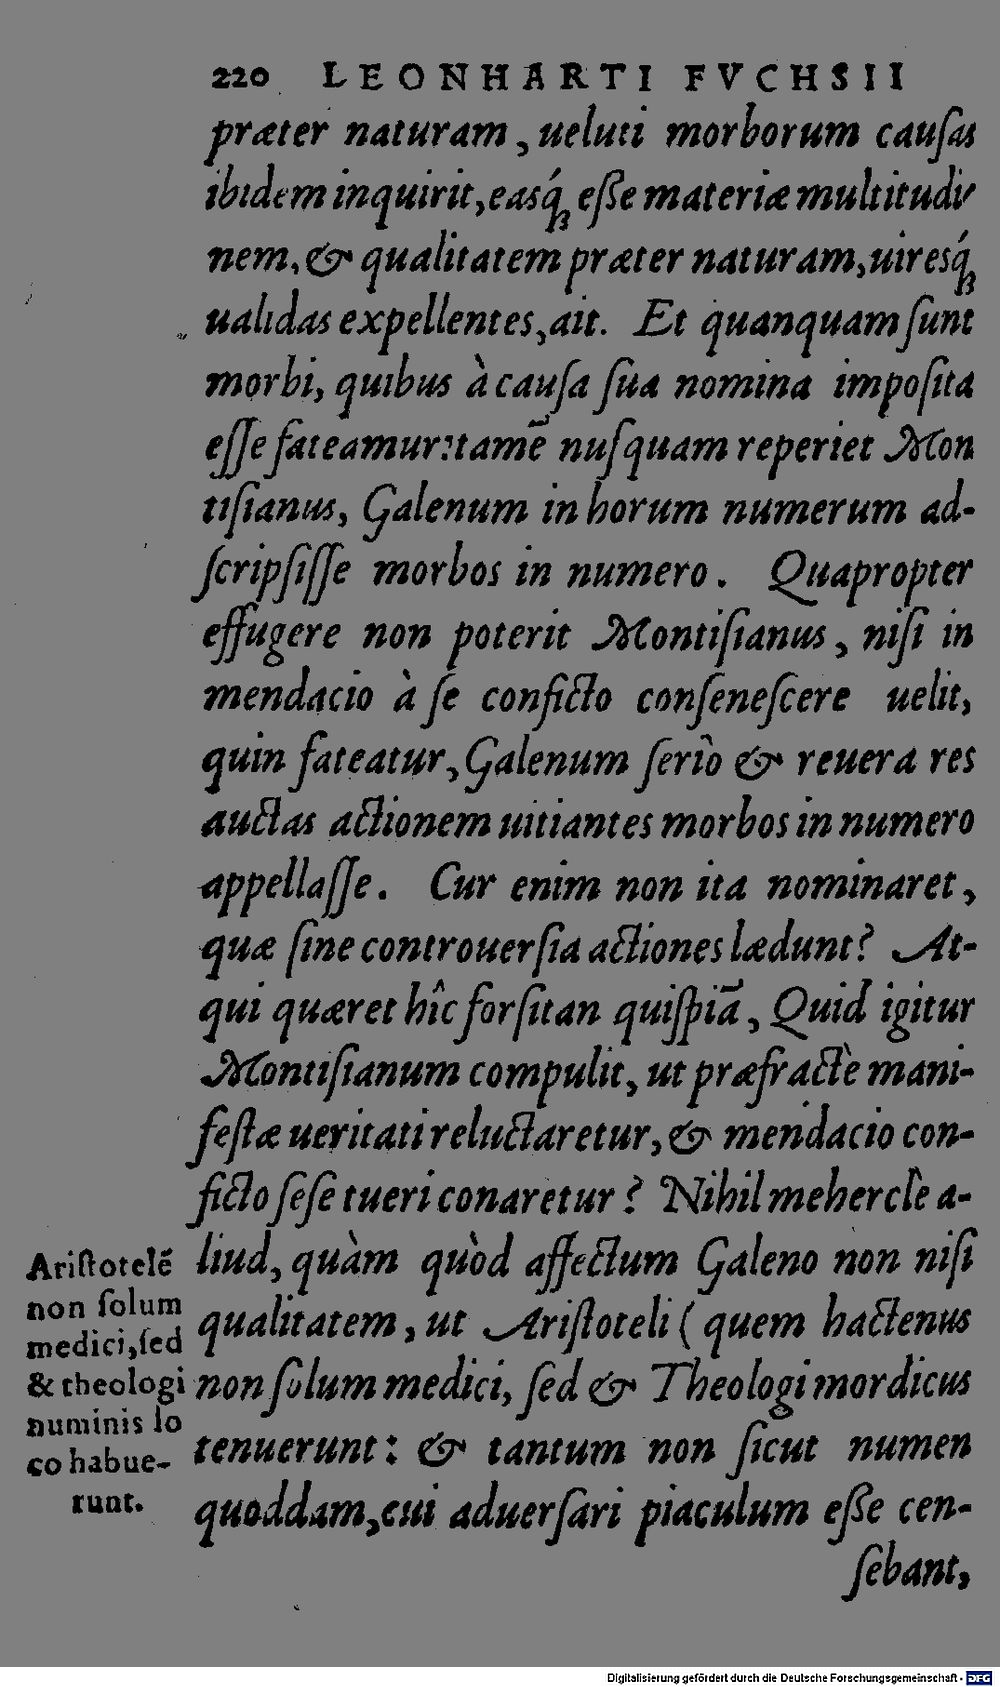 220 LEONHARTI FVCHSII
præter naturam, ueluti morborum cauſas
ibidem inquirit, easq́ꝫ eſſe materiæ multitudi
nem, & qualitatem præter naturam, uiresq́ꝫ
ualidas expellentes, ait. Et quanquam ſunt
morbi, quibus à cauſa ſua nomina impoſita
eſſe fateamur: tamẽ nuſquam reperiet Mon
tiſianus, Galenum in horum numerum ad-
ſcripſiſſe morbos in numero. Quapropter
effugere non poterit Montiſianus, niſi in
mendacio à ſe conficto conſeneſcere uelit,
quin fateatur, Galenum ſeriò & reuera res
auctas actionem uitiantes morbos in numero
appellaſſe. Cur enim non ita nominaret,
quæ ſine controuerſia actiones lædunt? At-
qui quæret hîc forſitan quiſpiã, Quid igitur
Montiſianum compulit, ut præfractè mani-
feſtæ ueritati reluctaretur, & mendacio con-
ficto ſeſe tueri conaretur? Nihil mehercle a-
liud, quàm quòd affectum Galeno non niſi
qualitatem, ut Ariſtoteli (quem hactenus
non ſolum medici, ſed & Theologi mordicus
tenuerunt: & tantum non ſicut numen
quoddam, cui aduerſari piaculum eſſe cen-
ſebant,
Ariſtotelẽ
non ſolum
medici, ſed
& theologi
numinis lo
co habue-
runt.
Digitalisierung gefördert durch die Deutsche Forschungsgemeinschaft - DFG